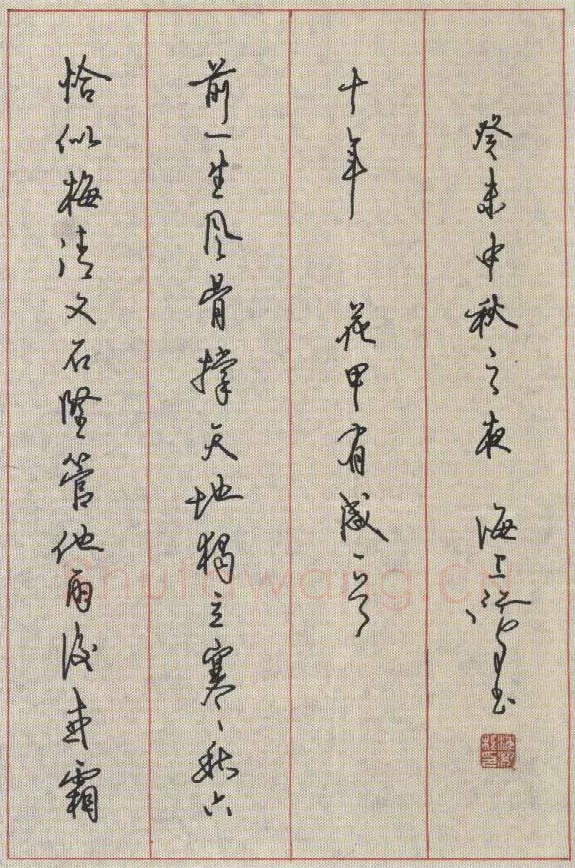 恰似梅清又石坚管他雨后或霜
前一生风骨撑天地独立寒秋六
十年 花甲有感
癸未中秋之夜 海上 书
shufawang.cn